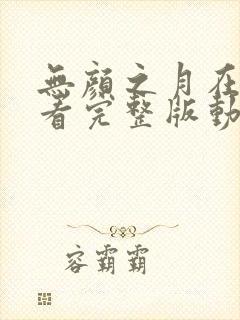 無顏之月在
看完整版動
容霸霸